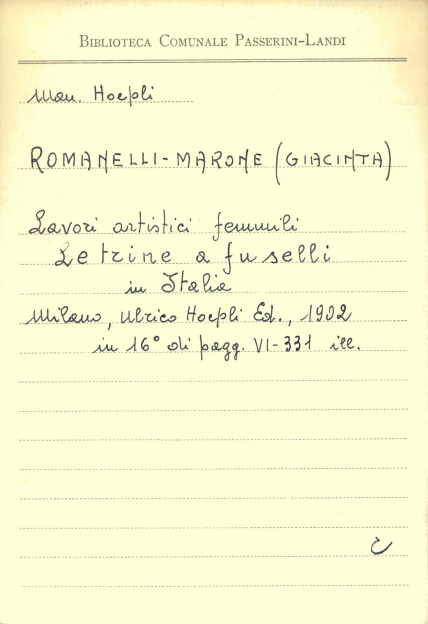 BIBLIOTECA COMUNALE PASSERINI-LANDI
Man. Hoepli
ROMANELLI-MARONE (GIACINTA)
Lavori artistici femmili
Le trine a fuselli
in Italia
Milano, Ulrico Hoepli Ed., 1902
in 16° di pagg. VI-331 ill.